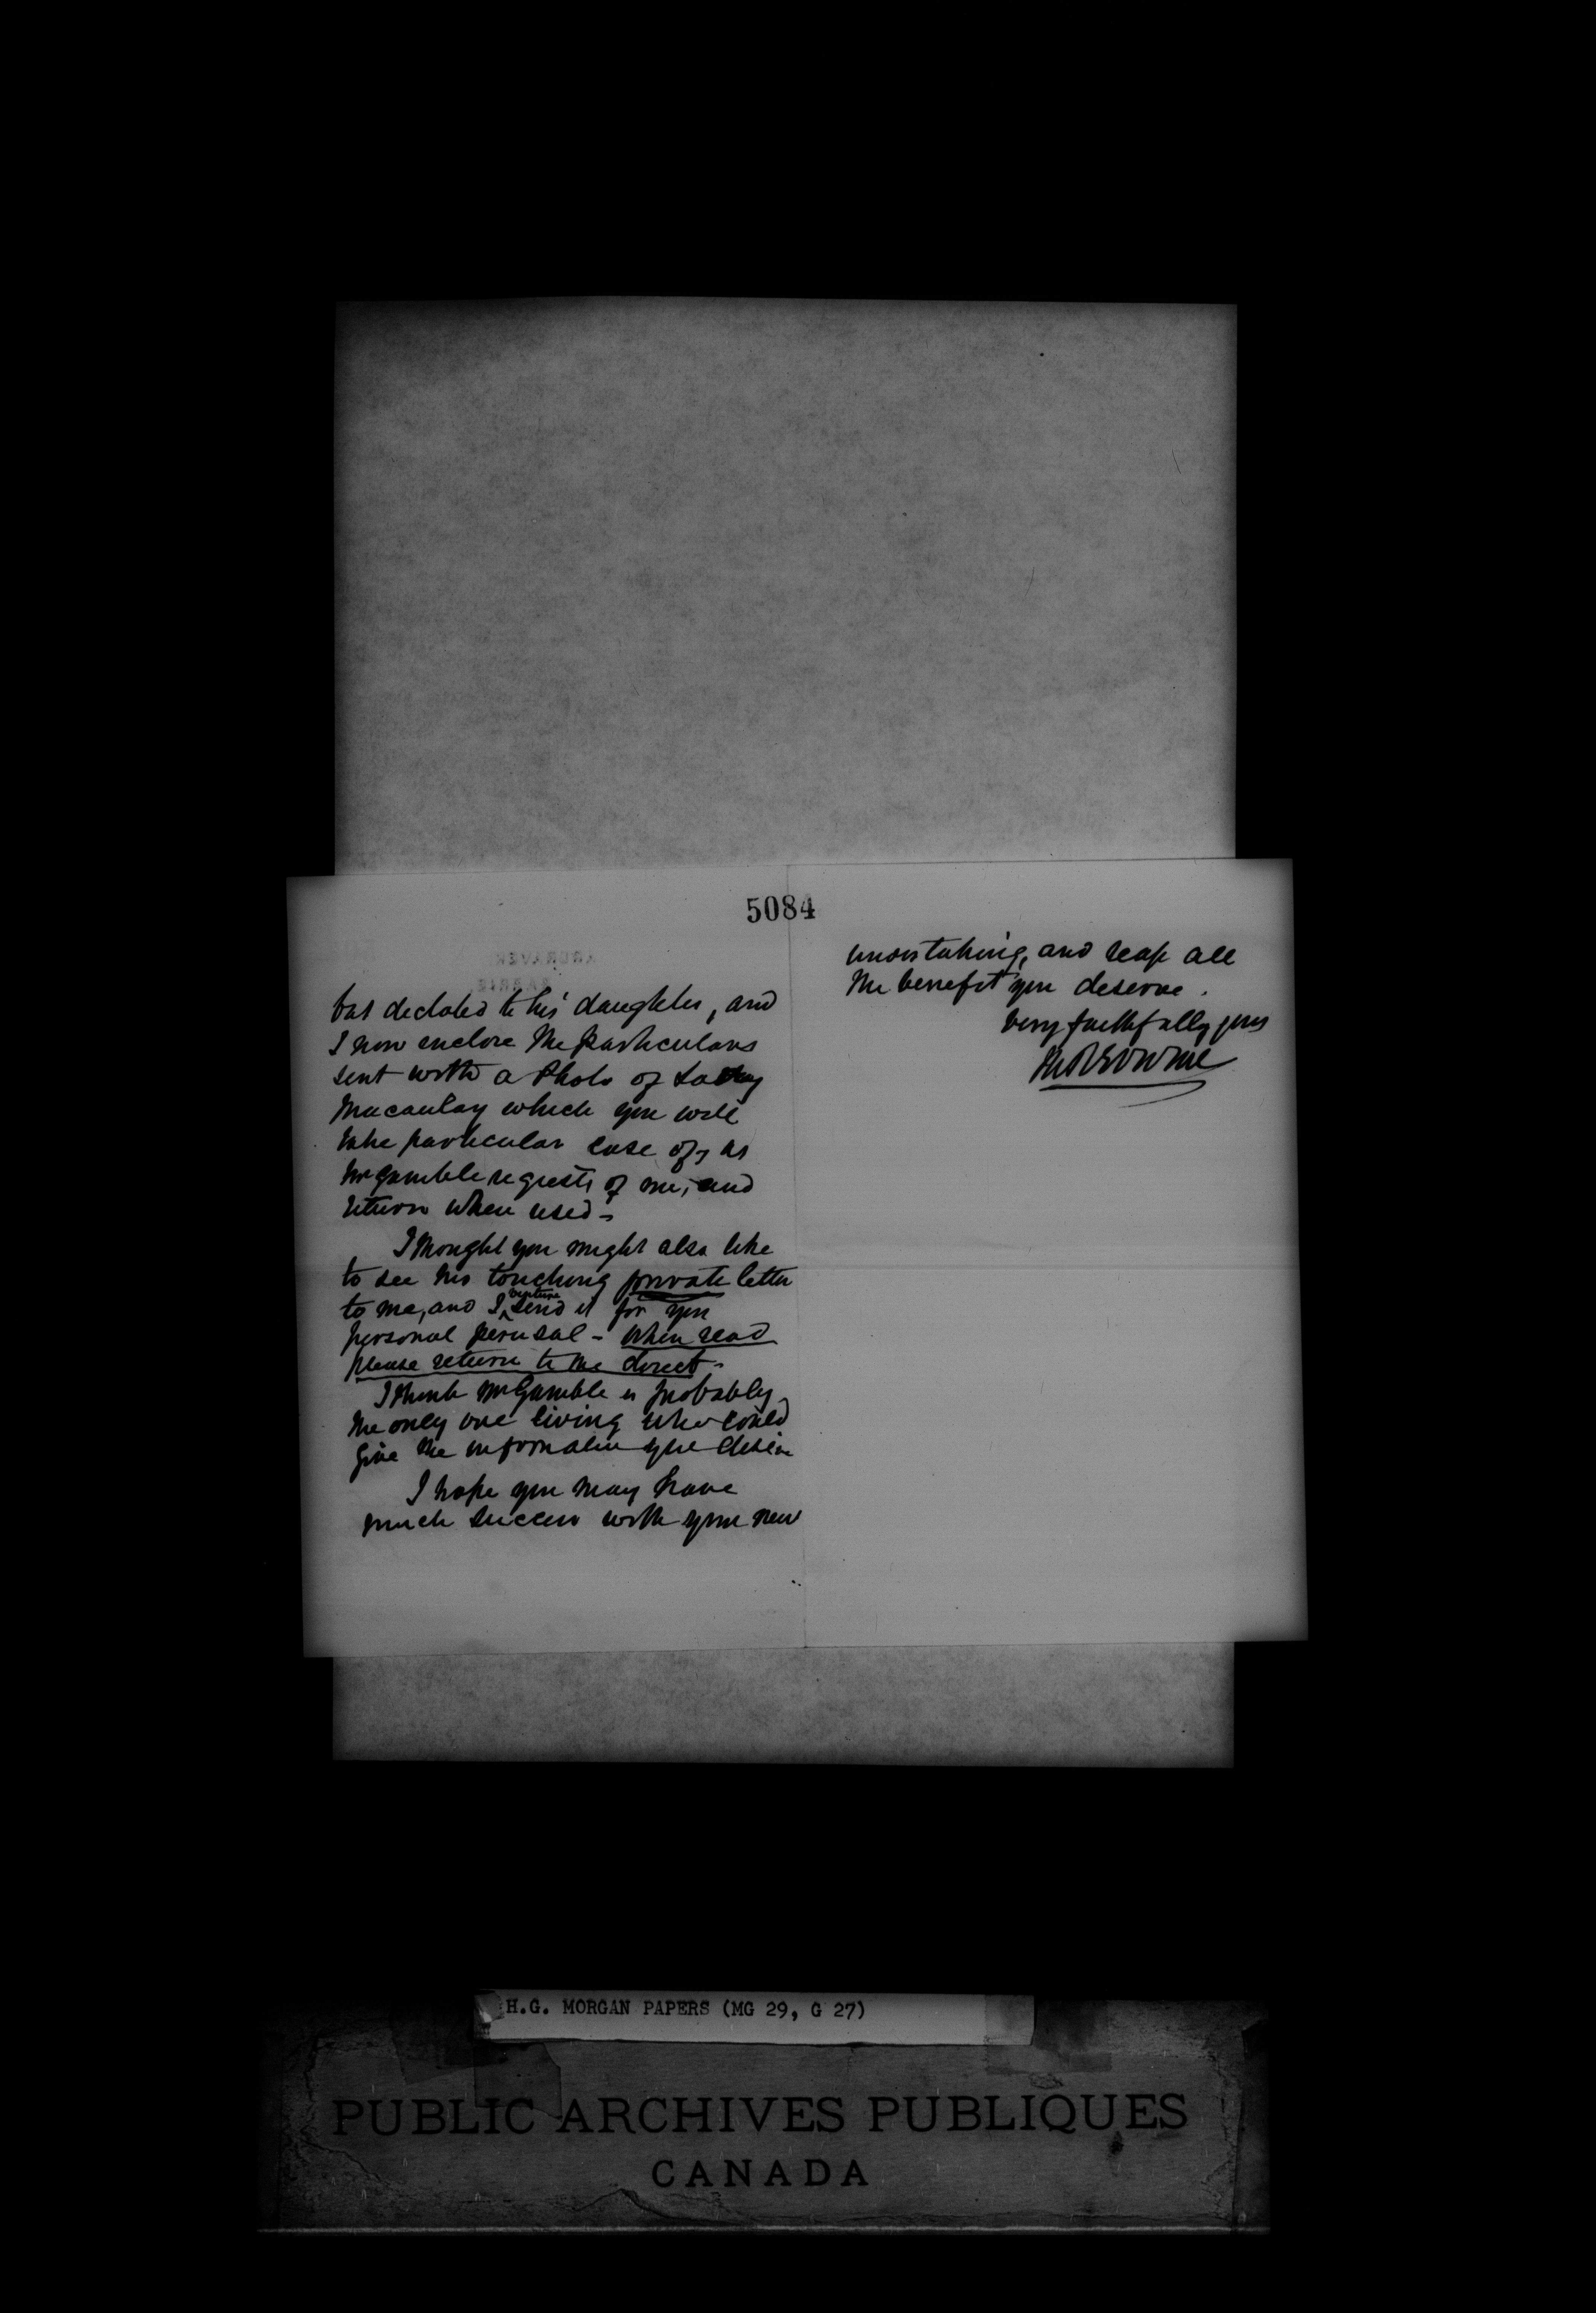 5084
but dictated to his daughter, and
I now enclose the particulars
sent with a Photo of Lady
Macaulay which you will
take particular care of, as
Mr Gamble requests of me, and
return when used -
I thought you might also like
to see his touching private letter
to me, and I venture send it for you
personal perusal - when read
please return to me direct -
I think Mr Gamble is probably
the only one living who could
give the information you desire
I hope you may have
much success with your new
undertaking, and reap all
the benefit you deserve.
Very faithfully yours
H.G. MORGAN PAPERS (MG 29, G 27)
PUBLIC ARCHIVES PUBLIQUES
CANADA